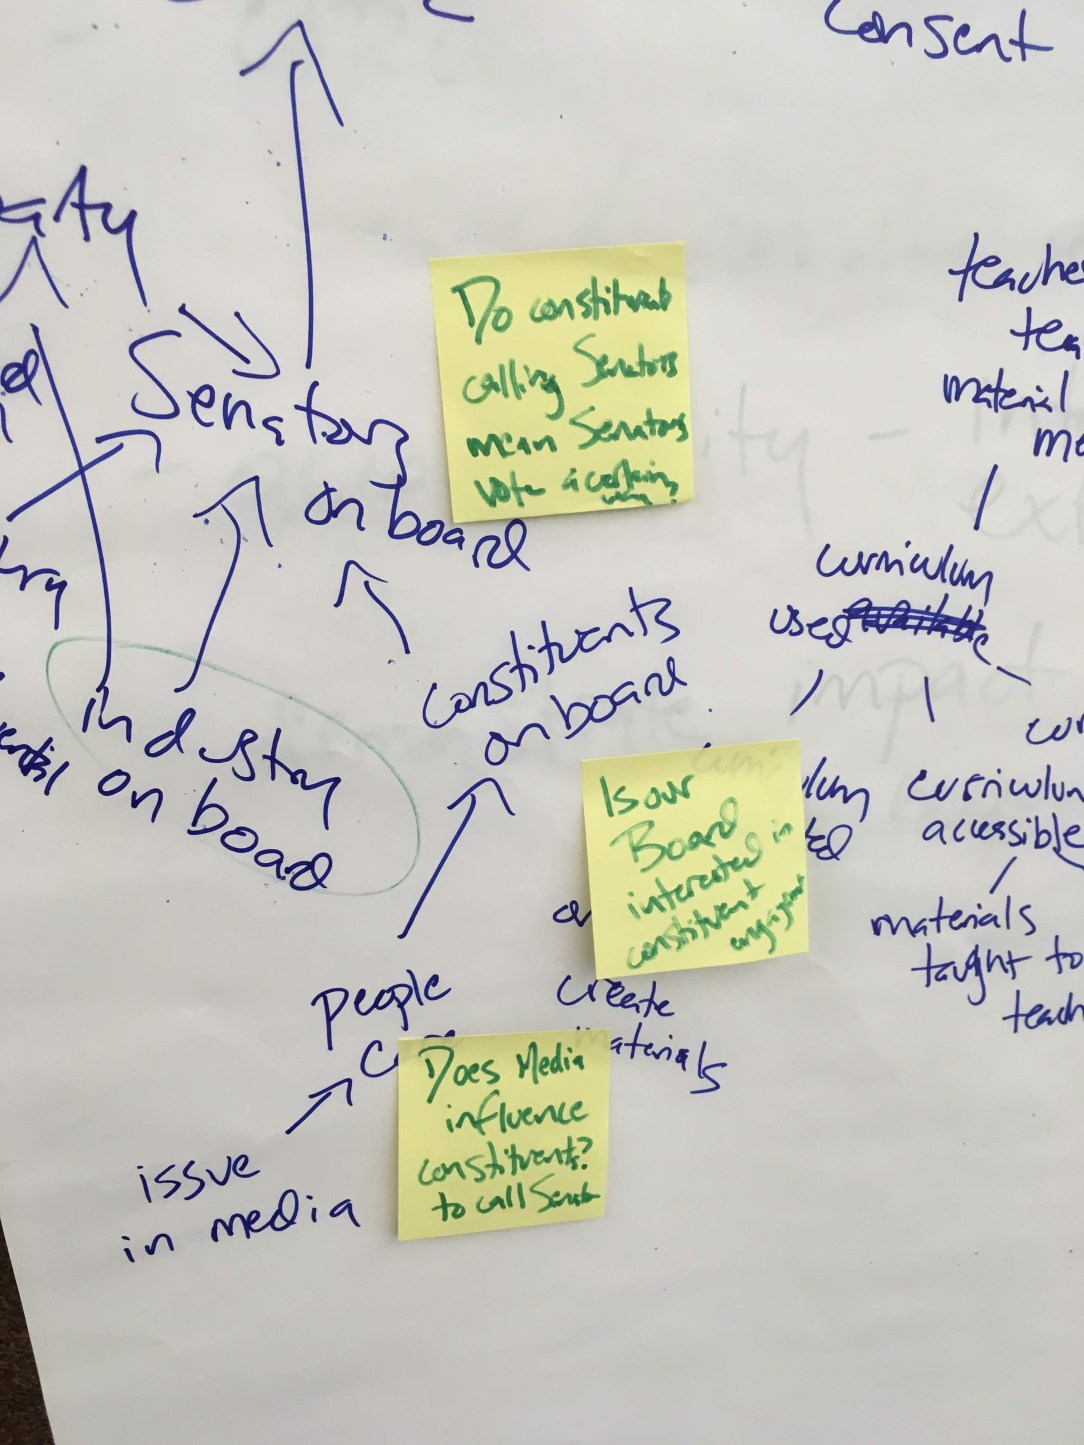 Consent
Senators
on board
Do constituents
calling Senators
mean Senators
vote a certain
way?
material
curriculum
used available
constituents
on board
industry
on board
Is our
Board
interested in
constituent
engagement
curriculum
accessible
materials
taught to
people
create
materials
Does Media
influence
constituents?
to call Senator
issue
in media